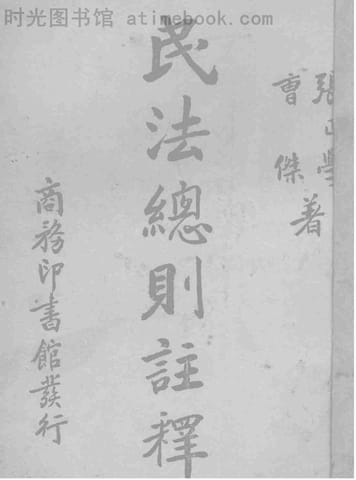 时光图书馆 atimebook.com
張正學
曹傑 著
民法總則註釋
商務印書館發行